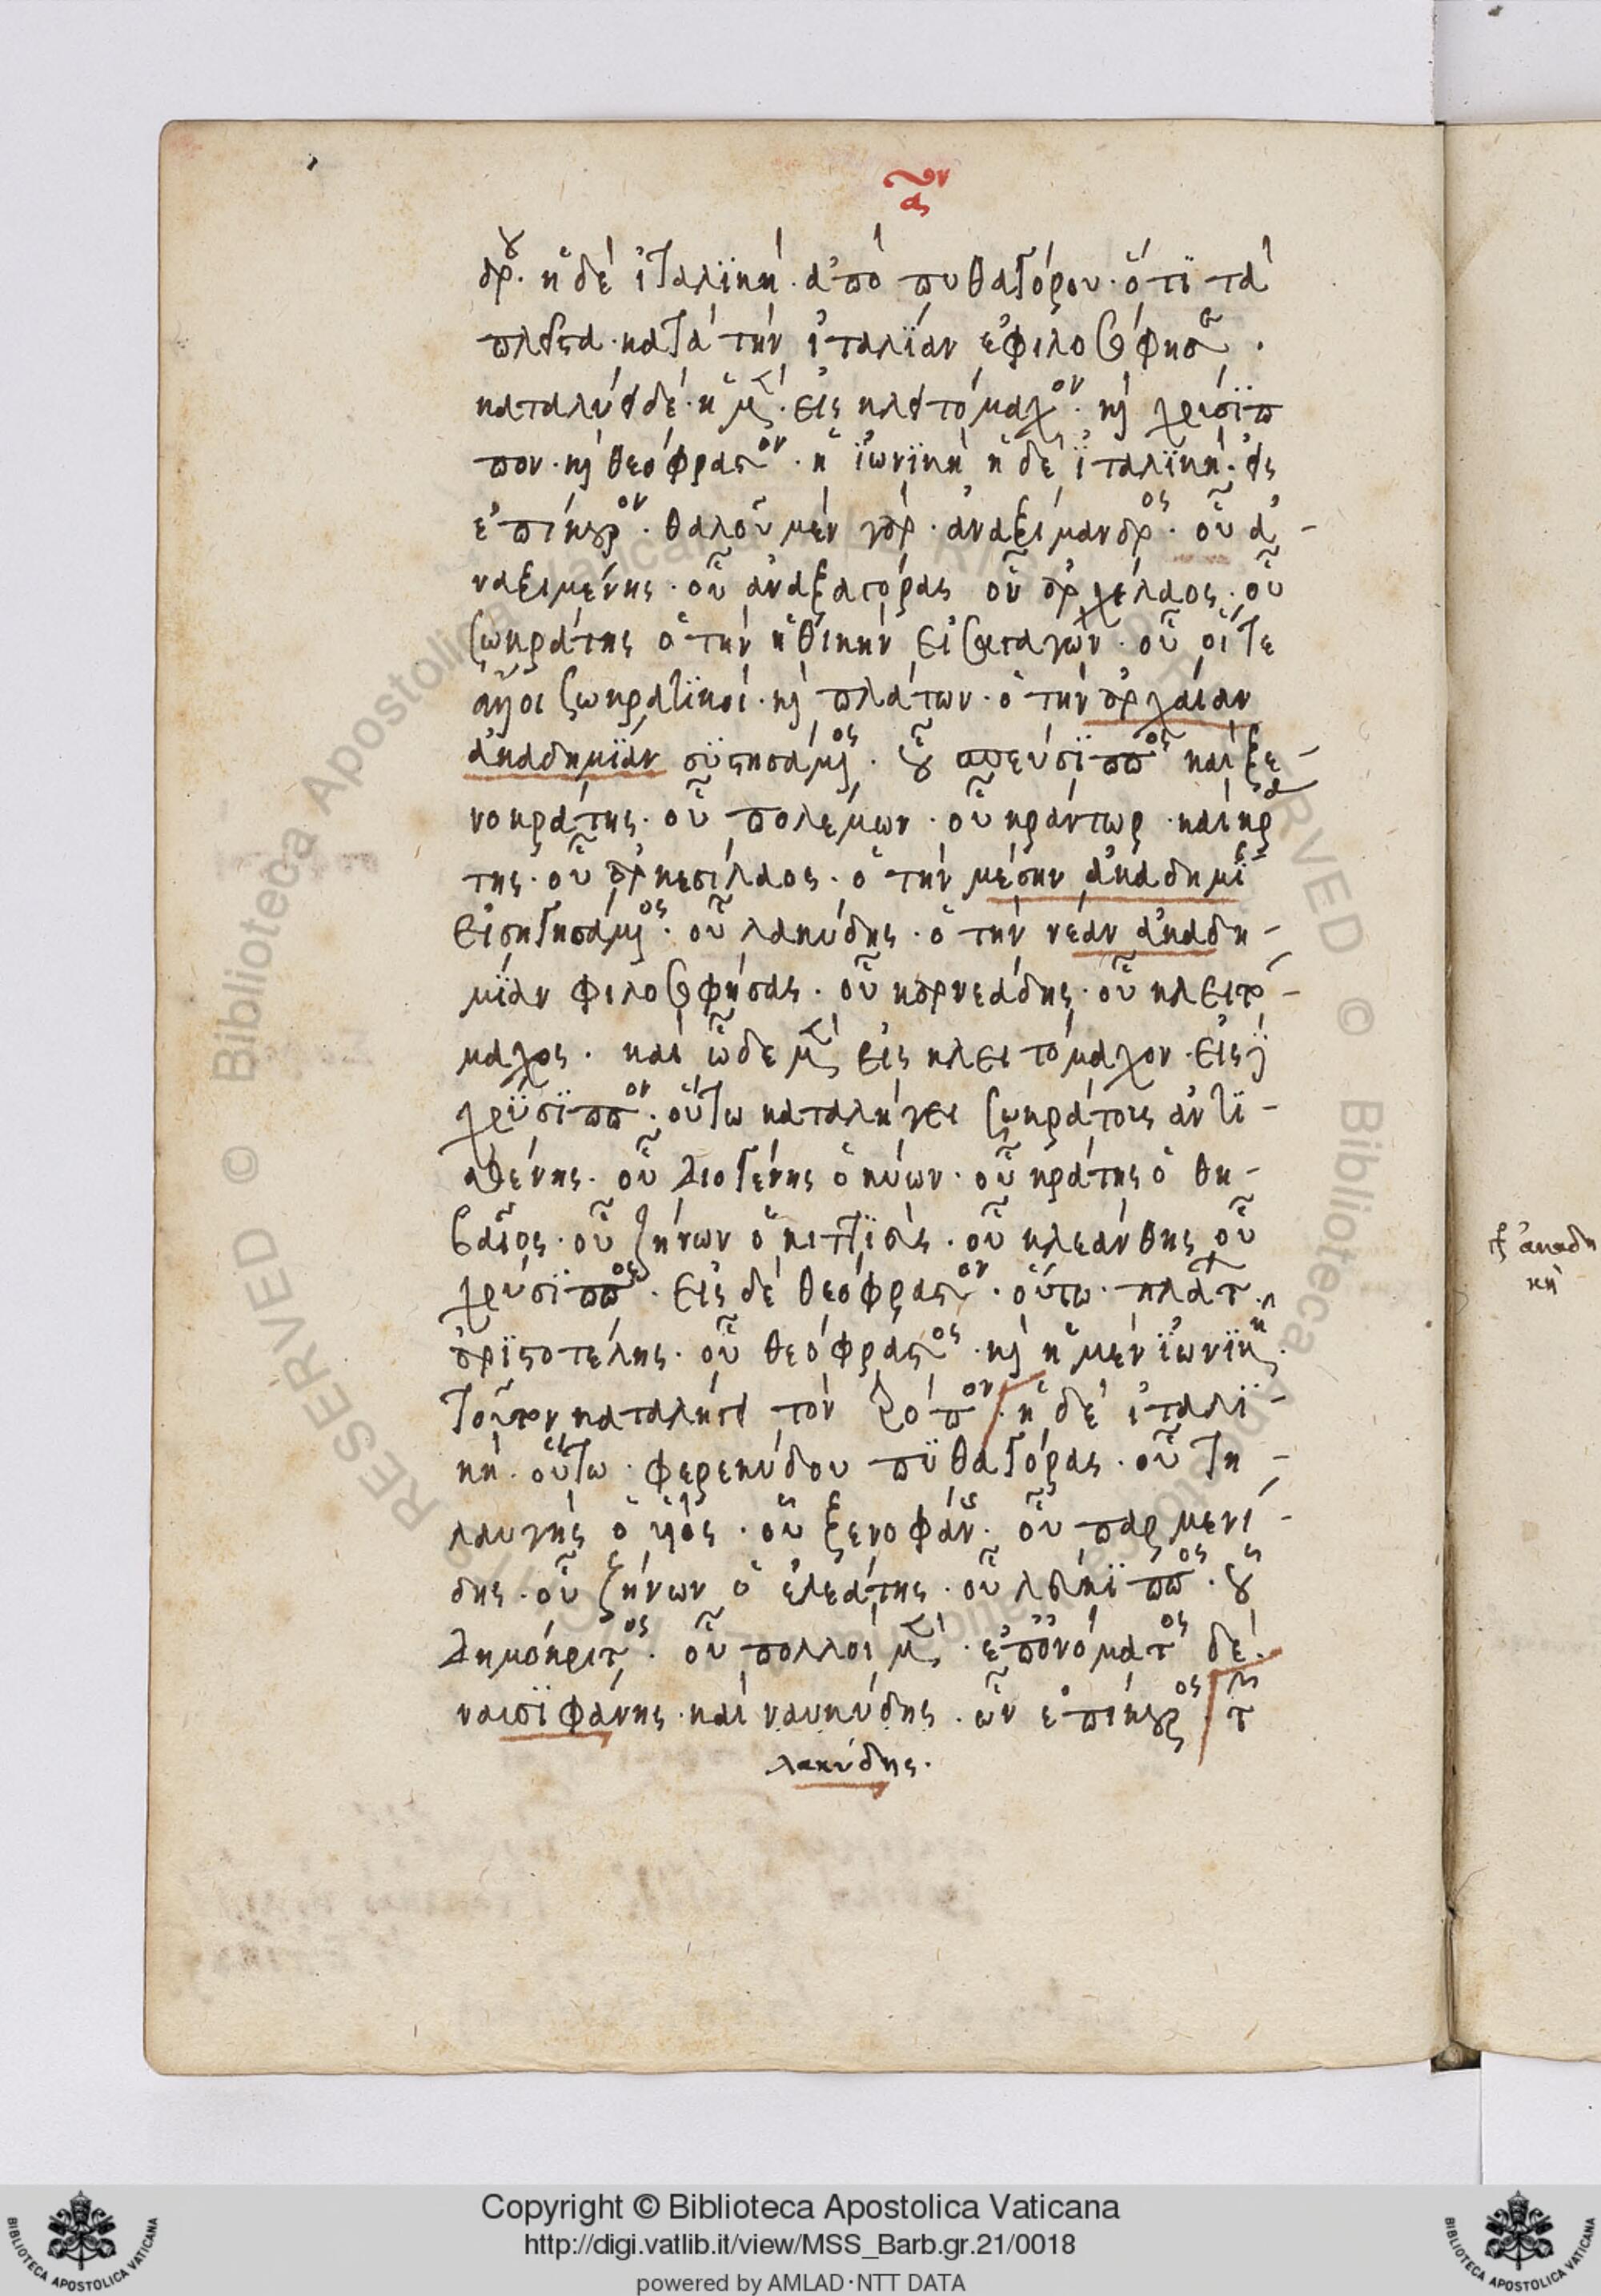 αον
δρου. ἡ δὲ ἰταλϊκὴ. ἀπὸ πυθαγόρου. ὅτϊ τὰ
πλεῖστα. κατὰ τὴν ἰταλϊάν ἐφιλοσόφησεν.
καταλύει δὲ. ἡ μὲν. εἰς κλειτόμαχον. καὶ χρύσϊπ
πον. καὶ θεόφραστον. ἡ ϊωνϊκὴ ἡ δὲ ϊταλϊκὴ. εἰς
ἐπίκουρον. θαλοῦ μὲν γὰρ. ἀναξίμανδρος. οὗ ἀ-
ναξιμένης. οὗ ἀναξαγόρας οὗ ἀρχέλαος. οὗ
σωκράτης ὁ τὴν ἠθικὴν εἰσαγαγὼν. οὗ οἵ τε
ἄλλοι σωκρατϊκοὶ. καὶ πλάτων. ὁ τὴν ἀρχαίαν
ἀκαδημϊάν συστησάμενος. οὗ σπεύσϊππος καὶ ξε-
νοκράτης. οὗ πολέμων. οὗ κράντωρ. καὶ κρά
της. οὗ ἀρκεσίλαος. ὁ τὴν μέσην ἀκαδημϊ
εἰσηγησάμενος. οὗ λακύδης. ὁ τὴν νέαν ἀκαδη-
μϊάν φιλοσοφήσας. οὗ καρνεάδης. οὗ κλειτό-
μαχος. καὶ ὧδε μὲν εἰς κλειτόμαχον. εἰς δὲ
χρύσϊππον. οὕτω καταλήγει σωκράτους ἀντϊ-
σθένης. οὗ διογένης ὁ κύων. οὗ κράτης ὁ θη-
βαῖος. οὗ ζήνων ὁ κιττϊεύς. οὗ κλεάνθης οὗ
χρύσϊππος. εἰς δὲ θεόφραστον. οὕτω. πλάτων
ἀρϊστοτέλης. οὗ θεόφραστος. καὶ ἡ μὲν ϊωνϊκὴ.
τοῦτον καταλήγει τὸν τρόπον. ἡ δὲ ἰταλϊ-
κὴ. οὕτω. φερεκύδου πϋθαγόρας. οὗ τη-
λαυγὴς ὁ υἱός. οὗ ξενοφάνης. οὗ παρμενί-
δης. οὗ ζήνων ὁ ἐλεάτης. οὗ λεύκϊππος. οὗ
δημόκριτος. οὗ πολλοὶ μὲν. ἐπονόματος δὲ.
ναυσϊφάνης. καὶ ναυκύδης. ὧν ἐπίκουρος. τῶν
λακύδης.